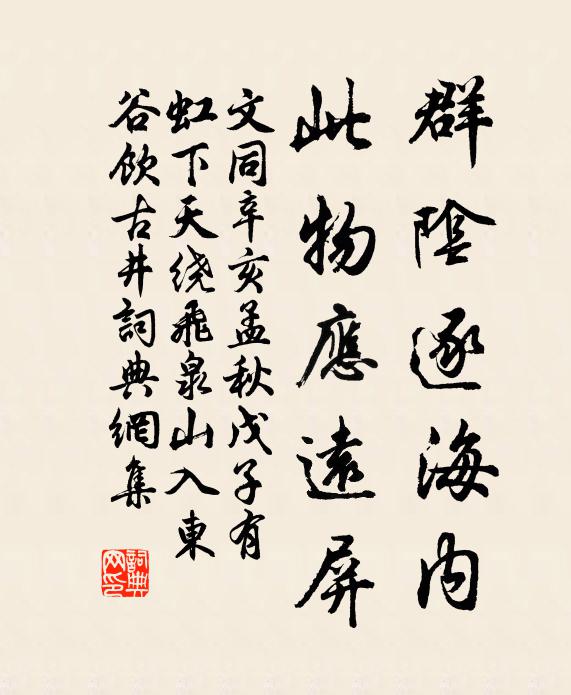 群陰逐海内
此物應遠屏
文同辛亥孟秋戊子有
虹下天绕飛泉山入東
谷飲古井詞典網集
詞典网印